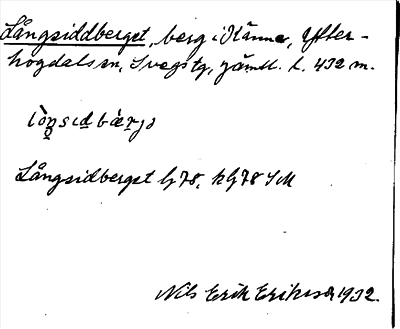 Långsiddberget, berg i Hänne, Ytter-
hogdals sn, Svegs tg, Jämtl. l. 432 m.
lòŋsıdbærjə
Långsidberget lj 78, hlj 78 SM
Nils Erik Eriksson 1932.